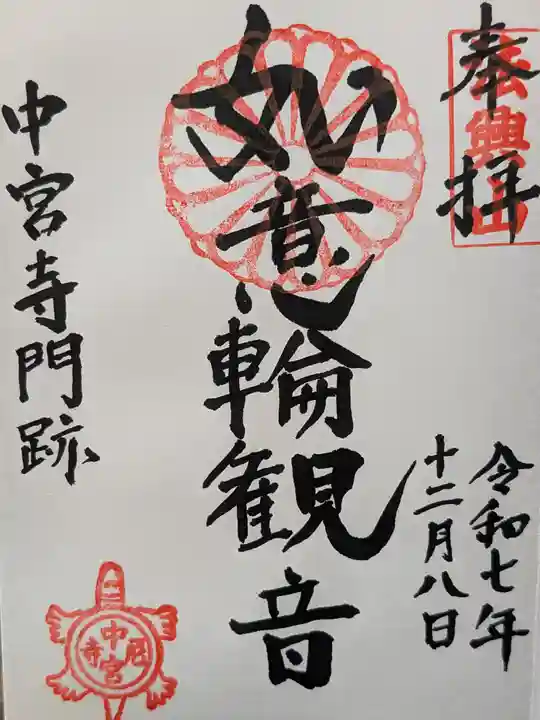 奉拝
法興山
令和七年
十二月八日
如意輪観音
中宮寺門跡
中宮尼寺